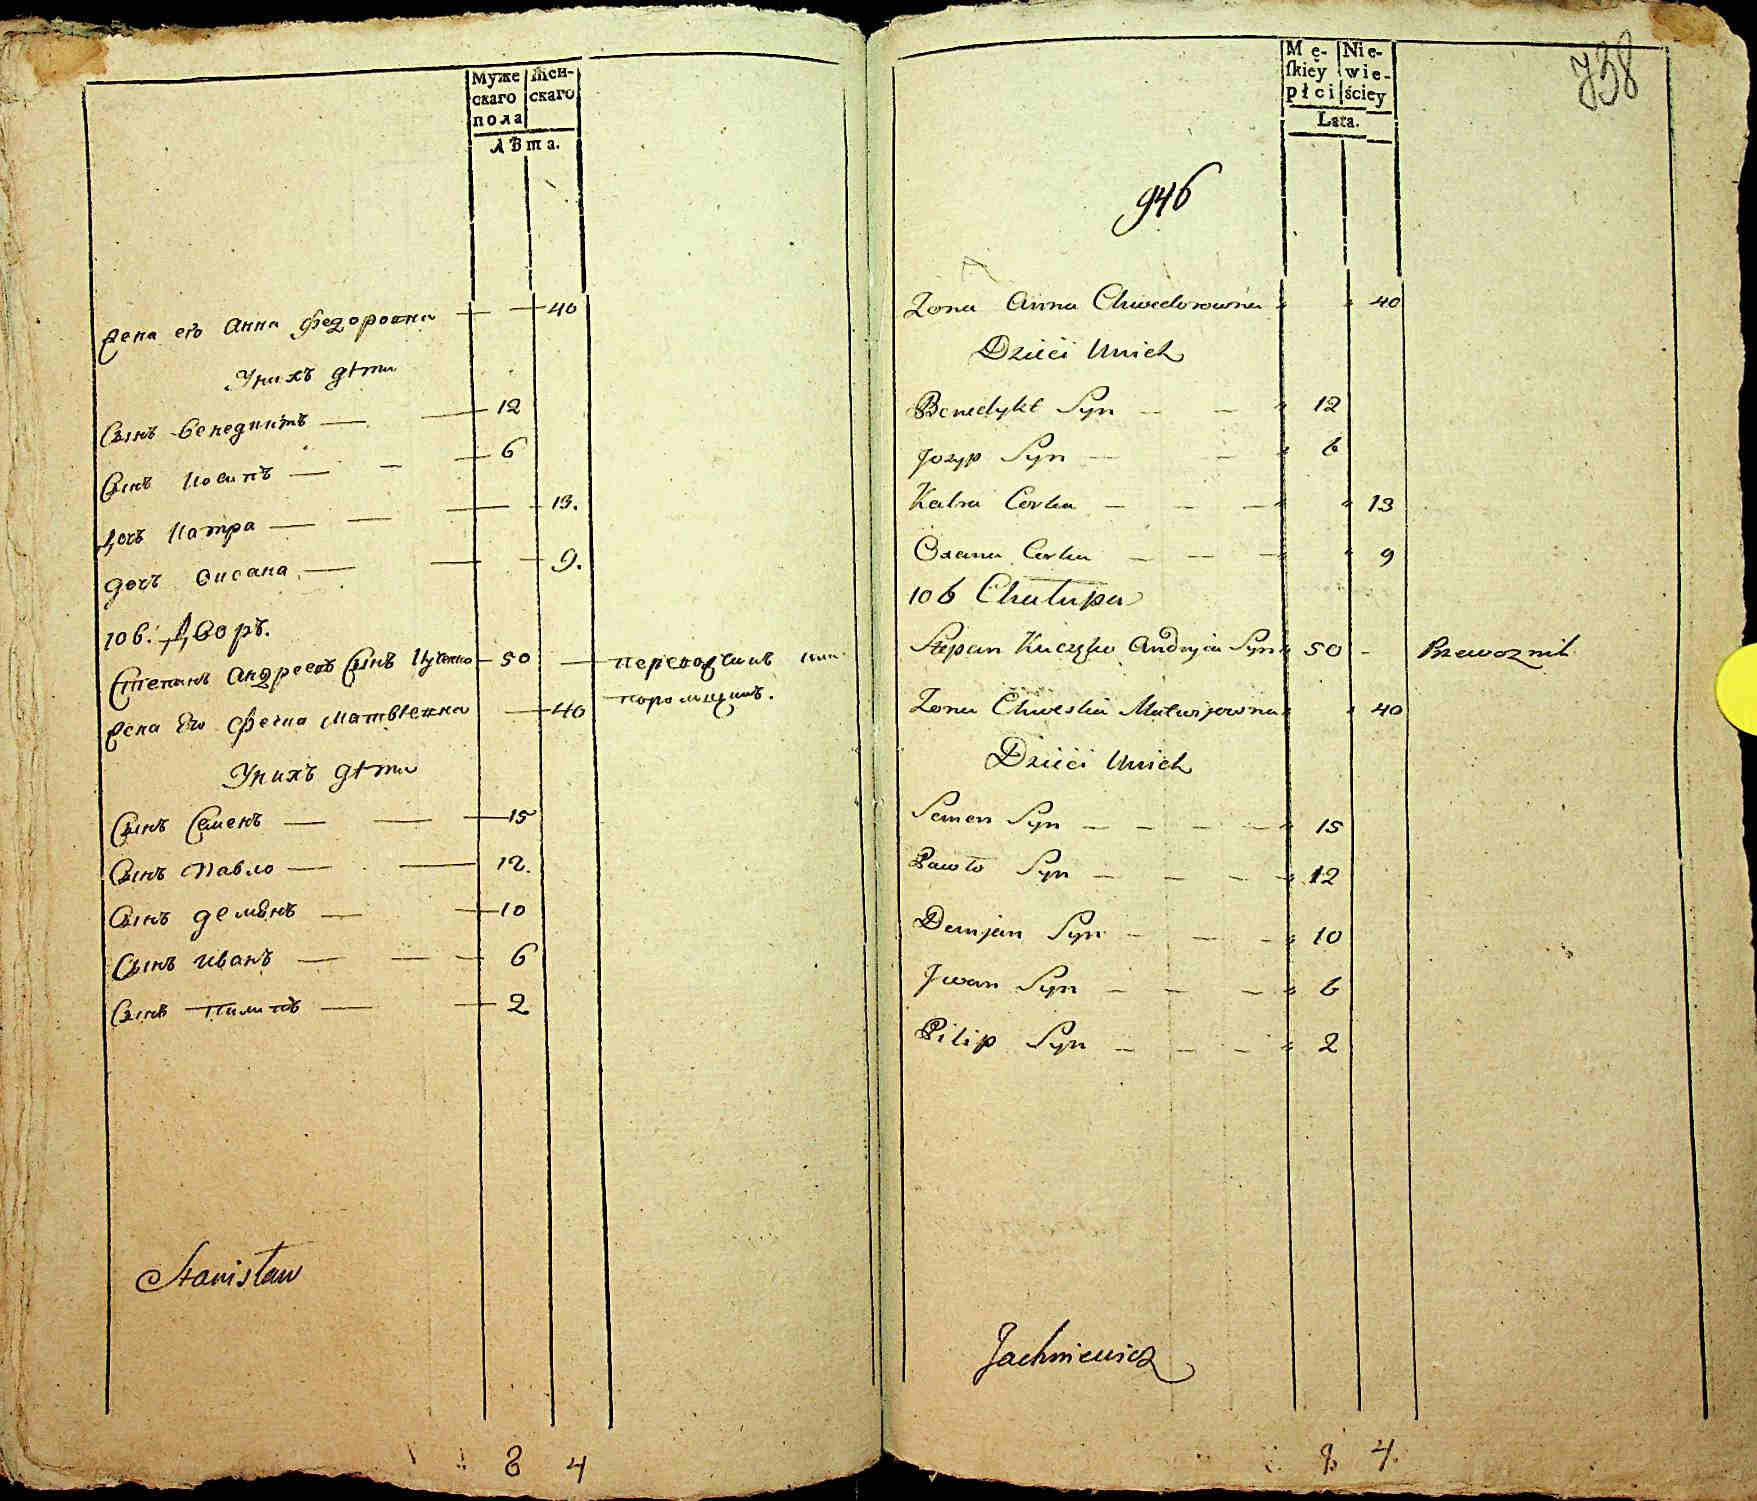 Муже
скаго
пола
Жен-
скаго
Лѣта.
Жена его Анна Федоровна — — 40
У нихъ дѣти
Сынъ Бенедиктъ — — 12
Сынъ Иосипъ — — — 6
Дочь Катра — — — — 13.
дочь Оксана — — — 9.
106. Дворъ.
Степанъ Андреевъ Сынъ — 50 — перевозчикъ или
поромщикъ.
Жена Его Феска Матвѣевна — 40
У нихъ дѣти
Сынъ Семенъ — — — 15
Сынъ Павло — — 12.
Сынъ Демянъ — — 10
Сынъ Иванъ — — — 6
Сынъ Пилипъ — — 2
Stanisław
8 4
Mę-
ſkiey
płci
Nie-
wie-
ściey
Lata.
738
946
Zona Anna Chwedorowna 40
Dzieci Unich
Benedykt Syn — — 12
Jozyp Syn — — 6
Katra Corka — — — 13
Oxana Corka — — — 9
106 Chałupa
Stepan Kuczyko Andryia Syn 50 - Przewoznik
Zona Chweska Matwijowna 40
Dzieci Unich
Semen Syn — — — — 15
Pawło Syn — — — — 12
Demjan Syn — — — 10
Jwan Syn — — — 6
Pilip Syn — — — 2
Jachniewicz
8 4.